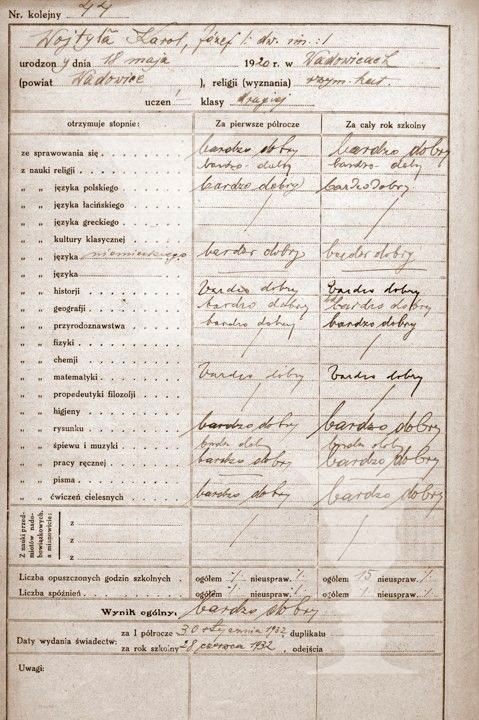 Nr. kolejny 44
Wojtyła Karol, Józef /: dw. im.:/
urodzony dnia 18 maja 1920 r. w Wadowicach
(powiat Wadowice ), religii (wyznania) rzym. kat.
uczeń klasy drugiej
otrzymuje stopnie: Za pierwsze półrocze Za cały rok szkolny
ze sprawowania się bardzo dobry bardzo dobry
z nauki religji bardzo dobry bardzo dobry
" " języka polskiego bardzo dobry bardzo dobry
" " języka łacińskiego / /
" " języka greckiego
" " kultury klasycznej
" " języka niemieckiego bardzo dobry bardzo dobry
" " języka
" " historji bardzo dobry bardzo dobry
" " geografji bardzo dobry bardzo dobry
" " przyrodoznawstwa bardzo dobry bardzo dobry
" " fizyki / /
" " chemji
" " matematyki bardzo dobry bardzo dobry
" " propedeutyki filozofji / /
" " higjeny
" " rysunku bardzo dobry bardzo dobry
" " śpiewu i muzyki bardzo dobry bardzo dobry
" " pracy ręcznej bardzo dobry bardzo dobry
" " pisma
" " ćwiczeń cielesnych bardzo dobry bardzo dobry
Z nauki przed-
miotów nado-
bowiązkowych,
a mianowicie:
z
z / /
z
Liczba opuszczonych godzin szkolnych ogółem ·/. nieuspraw. ·/. ogółem 15 nieuspraw. ·/.
Liczba spóźnień ogółem ·/. nieuspraw. ·/. ogółem ·/. nieuspraw. ·/.
Wynik ogólny: bardzo dobry
Daty wydania świadectw: za I półrocze 30 stycznia 1932 duplikatu
za rok szkolny 28 czerwca 1932, odejścia
Uwagi: